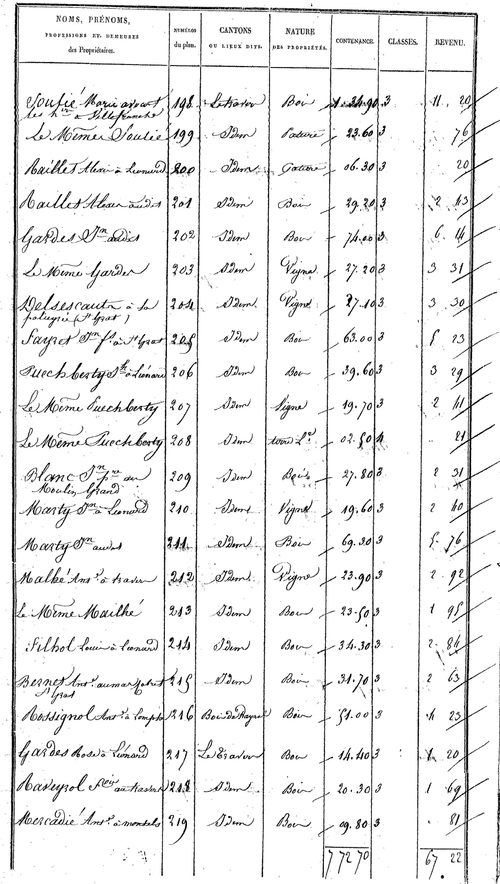 NOMS, PRÉNOMS, PROFESSIONS ET DEMEURES des Propriétaires. | NUMÉROS du plan. | CANTONS OU LIEUX DITS. | NATURE DES PROPRIÉTÉS. | CONTENANCE. | CLASSES. | REVENU.
Soulié Marie avocat les h.re à Villefranche 198 Le travers Bois 1.34.90 3 11 20
Le Même Soulié 199 Idem Pature 23.60 3 76
Raillet à Léonard 200 Idem Pature 06.30 3 20
Raillet audit 201 Idem Bois 29.20 3 2 43
Gardes Jn audit 202 Idem Bois 74.00 3 6 14
Le Même Gardes 203 Idem Vigne 27.20 3 3 31
Delsescaux à la (St Grat) 204 Idem Vigne 27.10 3 3 30
Fayret Jn fs à St Grat 205 Idem Bois 63.00 3 5 23
Puechberty à Léonard 206 Idem Bois 39.60 3 3 29
Le Même Puechberty 207 Idem Vigne 19.70 3 2 41
Le Même Puechberty 208 Idem 02.50 4 21
Blanc Jn au Moulin Grand 209 Idem Bois 27.80 3 2 31
Marty Jn à Léonard 210 Idem Vigne 19.60 3 2 40
Marty Jn audit 211 Idem Bois 69.30 3 5 76
Malhé Ant.e à traver 212 Idem Vigne 23.90 3 2 92
Le Même Mailhé 213 Idem Bois 23.50 3 1 95
Filhol Louis à Léonard 214 Idem Bois 34.30 3 2 84
Bernet Ant.e St Grat 215 Idem Bois 31.70 3 2 63
Rossignol Ant.e à 216 Bois de Bois 51.00 3 4 23
Gardes Rose à Léonard 217 Le Traver Bois 14.40 3 1 20
Raveyrol au traver 218 Idem Bois 20.30 3 1 69
Mercadié Ant.e à 219 Idem Bois 09.80 3 81
7 72 70 67. 22